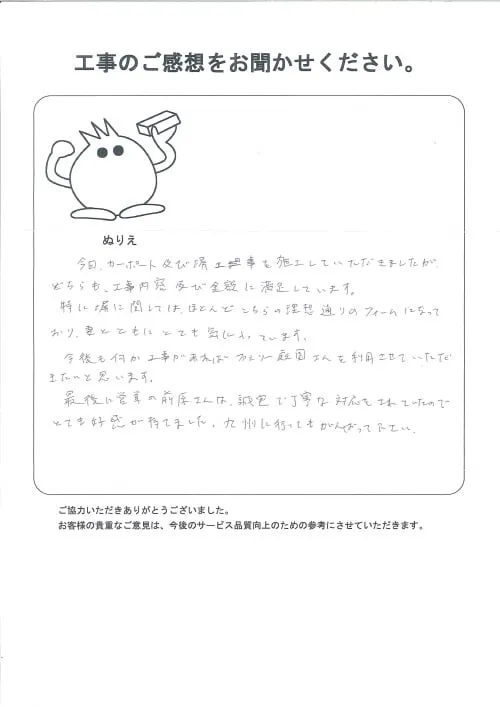 工事のご感想をお聞かせください。
ぬりえ
今回、カーポート及び塀工事を施工していただきましたが、
どちらも、工事内容及び金額に満足しています。
特に塀に関しては、ほとんどこちらの理想通りのフォームになって
おり、妻とともにとても気に入っています。
今後も何か工事があれば 庭園さんを利用させていただ
きたいと思います。
最後に営業の前原さんは、誠実で丁寧な対応をされていたので
とても好感が持てました。九州に行ってもがんばって下さい。
ご協力いただきありがとうございました。
お客様の貴重なご意見は、今後のサービス品質向上のための参考にさせていただきます。